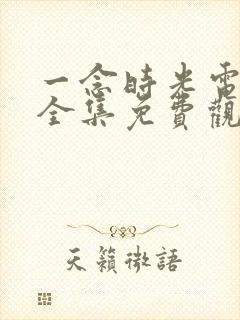 一念時光電
全集免費觀
天籟微語